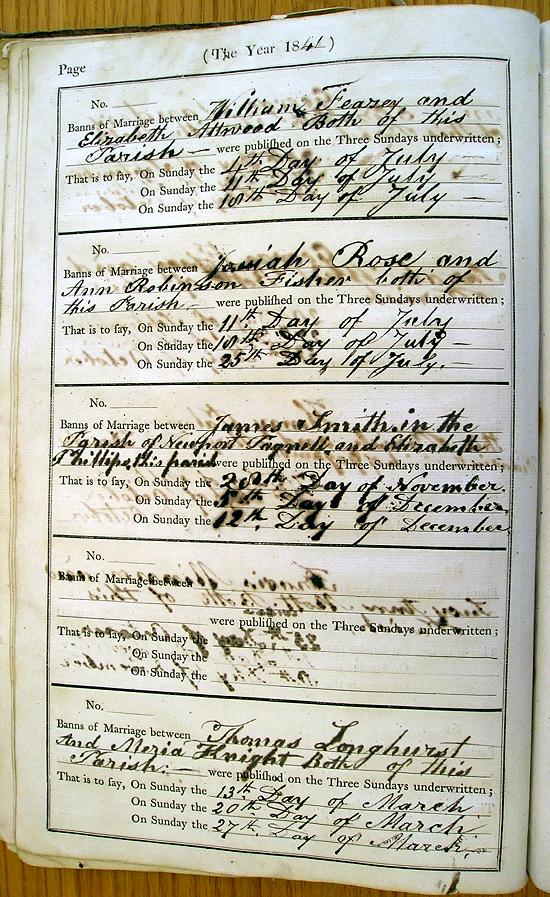 Page
(The Year 1841)
No.
Banns of Marriage between William Fearey and
Elizabeth Attwood Both of this
Parish — were publiſhed on the Three Sundays underwritten;
That is to ſay, On Sunday the 4th Day of July
On Sunday the 11th Day of July
On Sunday the 18th Day of July —
No.
Banns of Marriage between Josiah Rose and
Ann Robinson Fisher both of
this Parish — were publiſhed on the Three Sundays underwritten;
That is to ſay, On Sunday the 11th Day of July
On Sunday the 18th Day of July —
On Sunday the 25th Day of July.
No.
Banns of Marriage between James Smith in the
Parish of Newport Pagnell and Elizabeth
Phillips, this parish were publiſhed on the Three Sundays underwritten;
That is to ſay, On Sunday the Day of November
On Sunday the 5th Day of December
On Sunday the 12th Day of December
No.
Banns of Marriage between
were publiſhed on the Three Sundays underwritten;
That is to ſay, On Sunday the
On Sunday the
On Sunday the
No.
Banns of Marriage between Thomas Longhurst
And Meria Knight Both of this
Parish: — were publiſhed on the Three Sundays underwritten;
That is to ſay, On Sunday the 13th Day of March
On Sunday the 20th Day of March
On Sunday the 27th Day of March.